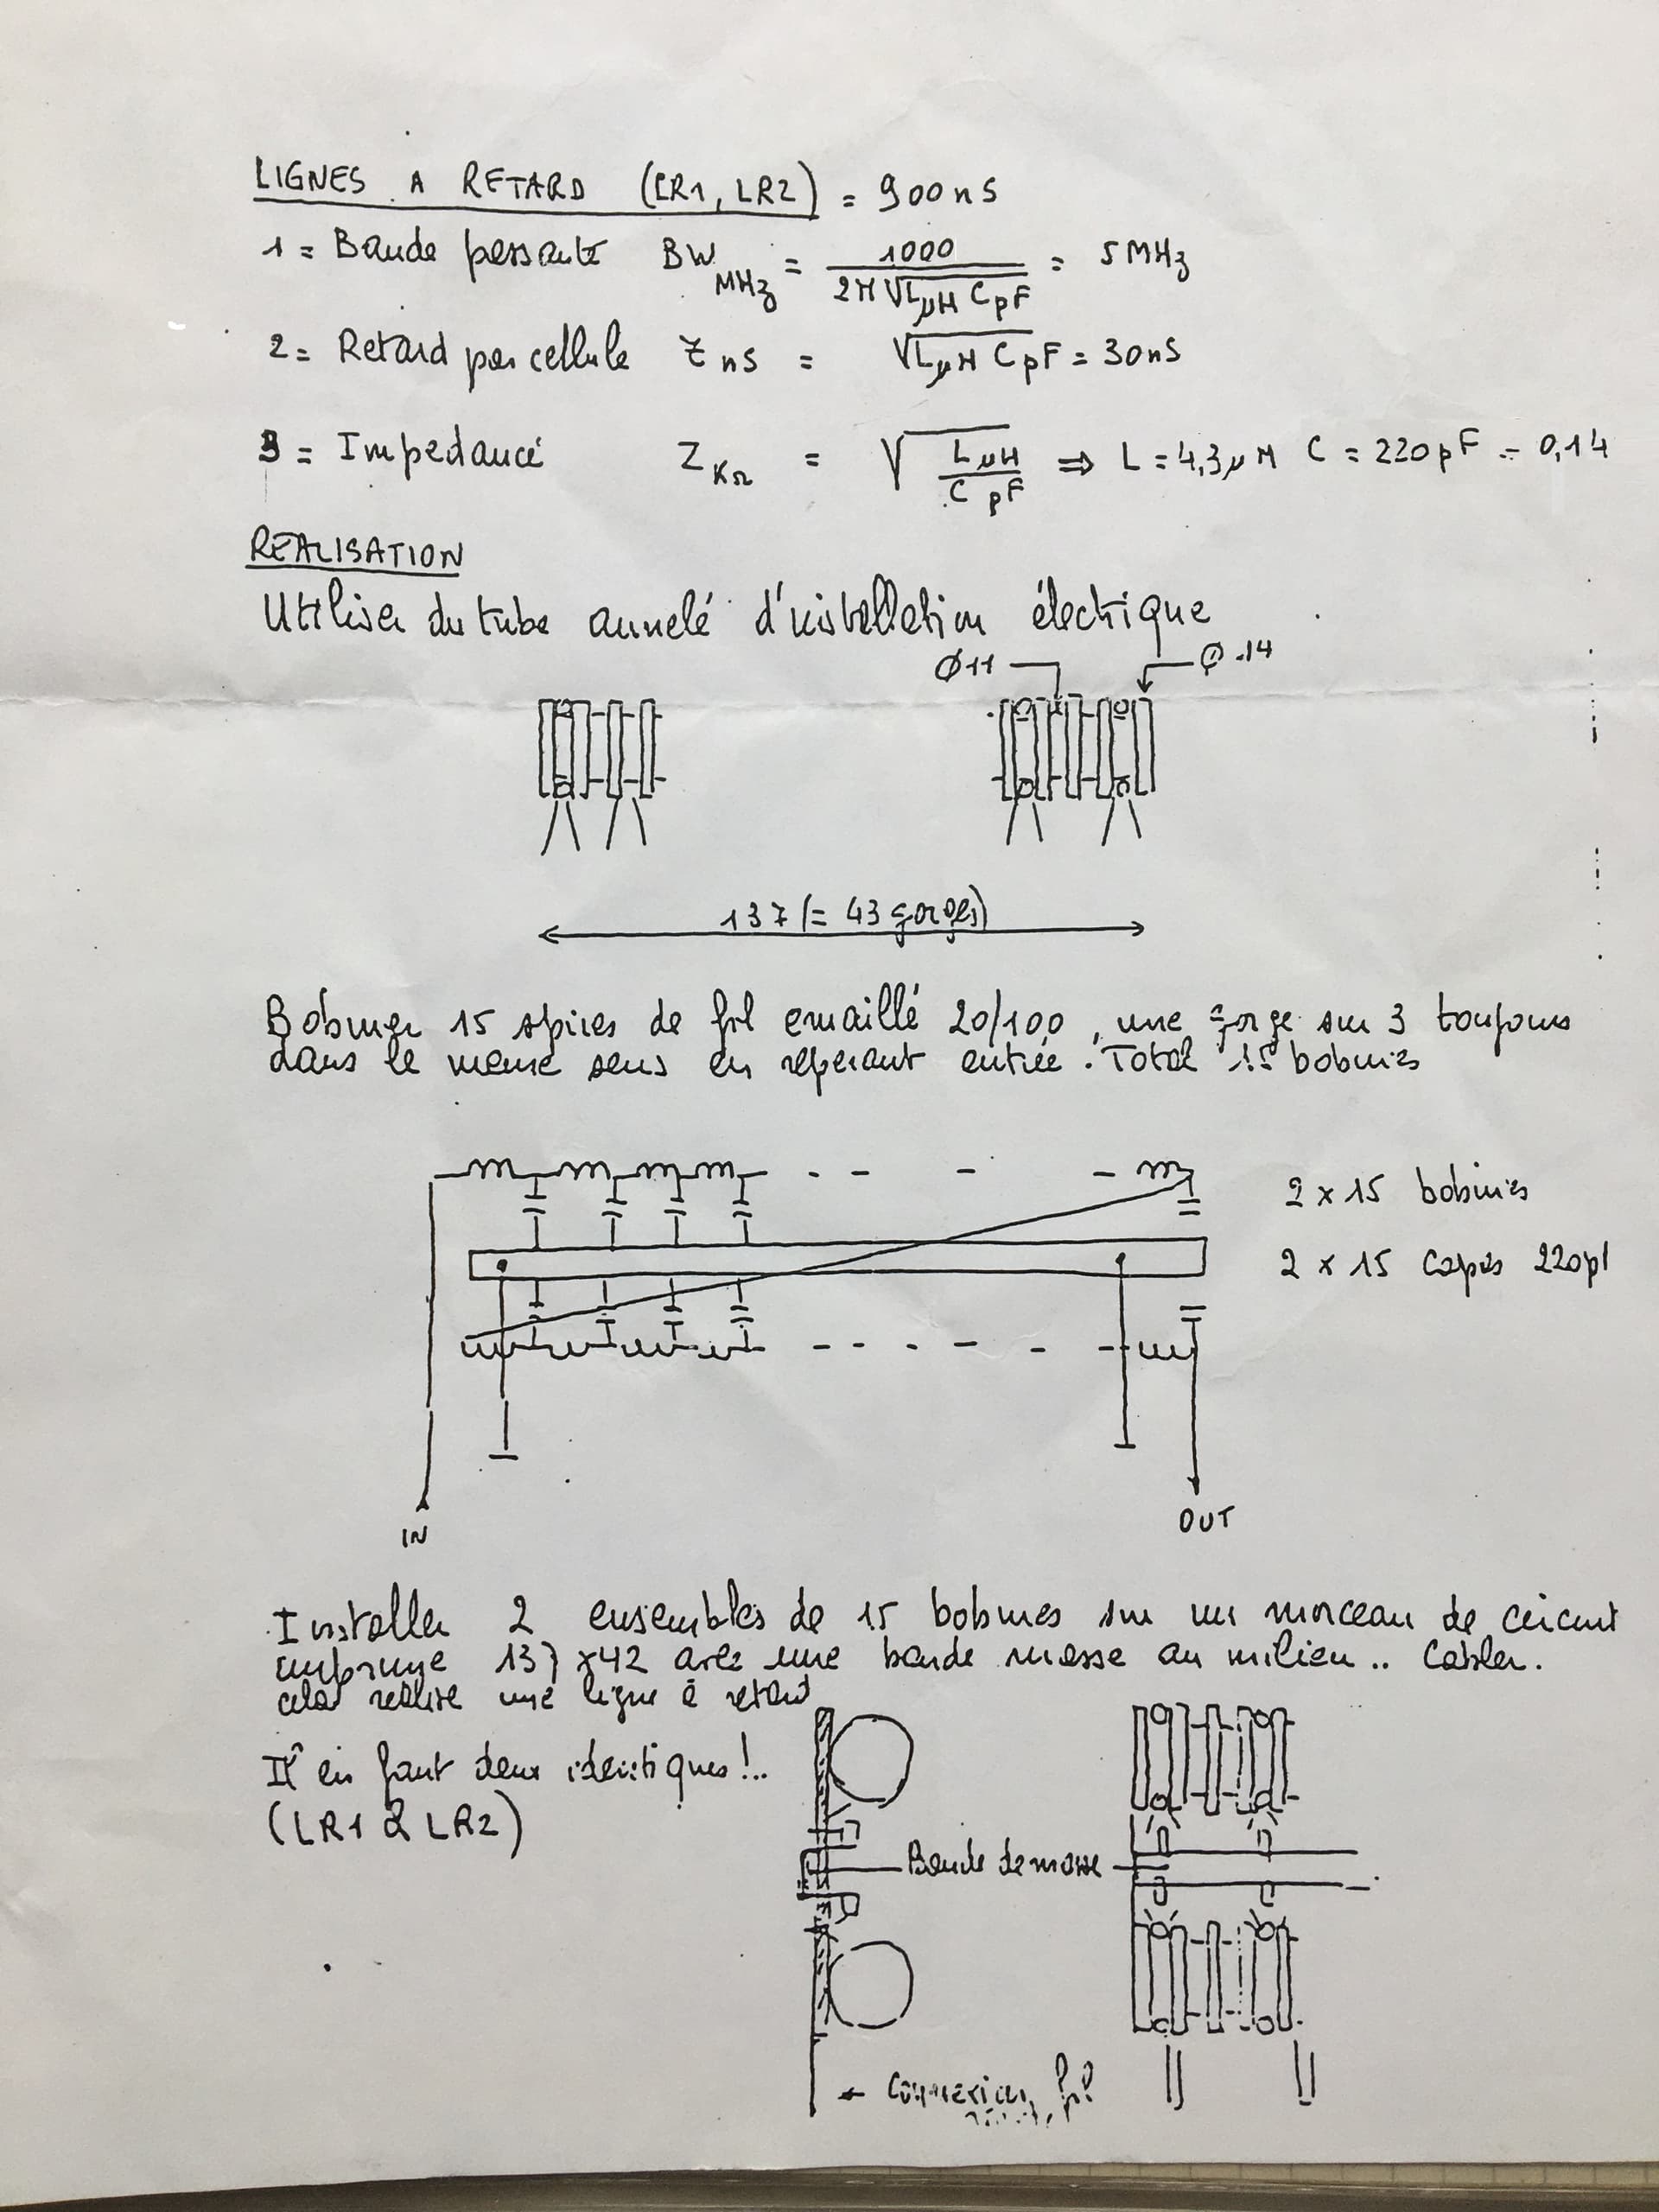 LIGNES A RETARD (LR1, LR2) = 900nS
1 = Bande passante BW MHz = 1000 / 2π√LμH CpF = 5MHz
2 = Retard par cellule τ nS = √LμH CpF = 30nS
3 = Impedance Z KΩ = √ LμH / C pF ⇒ L = 4,3μH C = 220pF = 0,14
REALISATION
Utiliser du tube annelé d'installation électrique
Ø11 Ø 14
137 (= 43 gorges)
Bobiner 15 spires de fil emaillé 20/100, une gorge sur 3 toujours
dans le meme sens en reperant entrée. Total 15 bobines
2 x 15 bobines
2 x 15 capas 220pf
IN
OUT
Installer 2 ensembles de 15 bobines sur un morceau de circuit
imprime 137 x42 avec une bande masse au milieu.. Cabler.
cela realise une ligne à retard
Il en faut deux identiques!..
(LR1 & LR2)
Bande de masse
Connexion fil